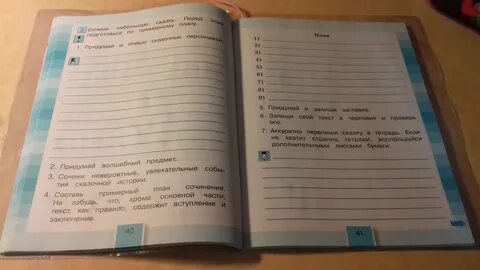 2 Сочини небольшую сказку. Перед этим
подготовься по примерному плану.
1. Придумай и опиши сказочных персонажей.
2. Придумай волшебный предмет.
3. Сочини невероятные, увлекательные собы-
тия сказочной истории.
4. Составь примерный план сочинения.
Не забудь, что, кроме основной части,
текст, как правило, содержит вступление и
заключение.
40
План
1)
2)
3)
4)
5)
6)
7)
8)
9)
5. Придумай и запиши заглавие.
6. Запиши свой текст в черновик и проверь
его.
7. Аккуратно перепиши сказку в тетрадь. Если
не хватит страниц тетради, воспользуйся
дополнительными листами бумаги.
41